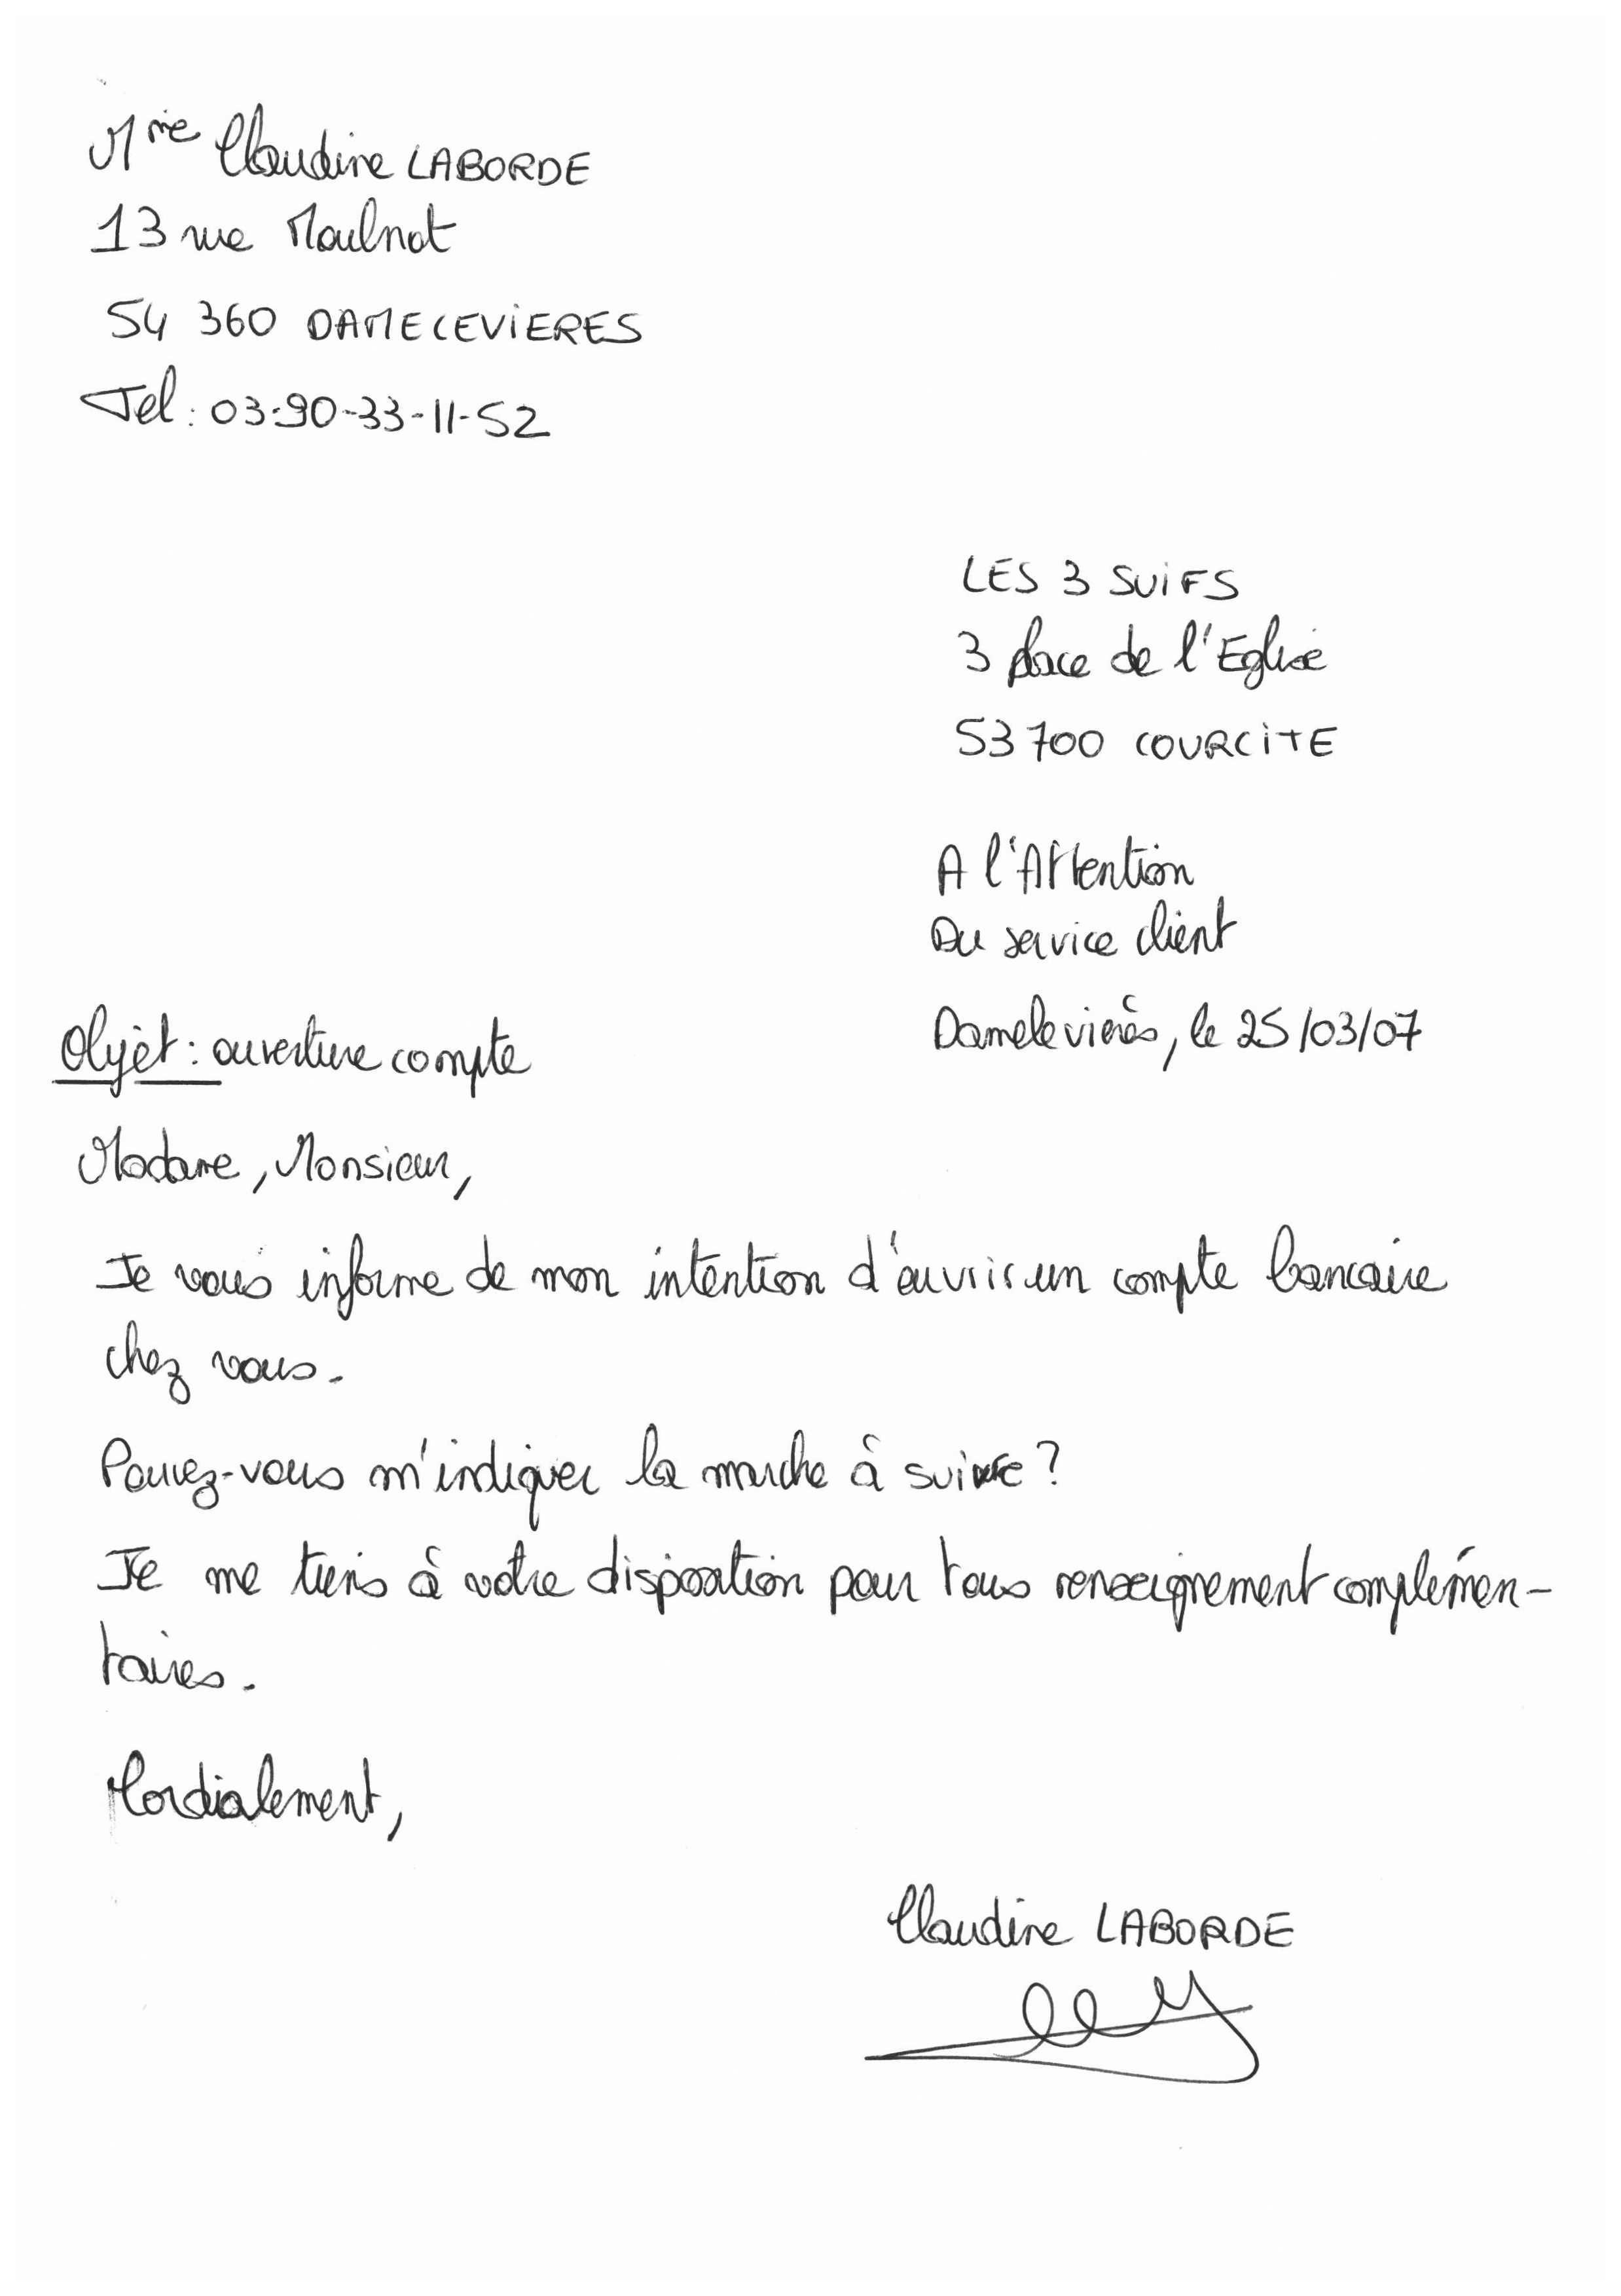 Mme Claudine LABORDE
13 rue Moulnot
54 360 DAMECEVIERES
Tel : 03-90-33-11-52
LES 3 SUIFS
3 place de l'Eglise
53 700 COURCITE
A l'Attention
Du service client
Damelevières, le 25/03/07
Objet : ouverture compte
Madame, Monsieur,
Je vous informe de mon intention d'ouvrir un compte bancaire
chez vous.
Pouvez-vous m'indiquer la marche à suivre ?
Je me tiens à votre disposition pour tous renseignement complémen-
taires.
Cordialement,
Claudine LABORDE